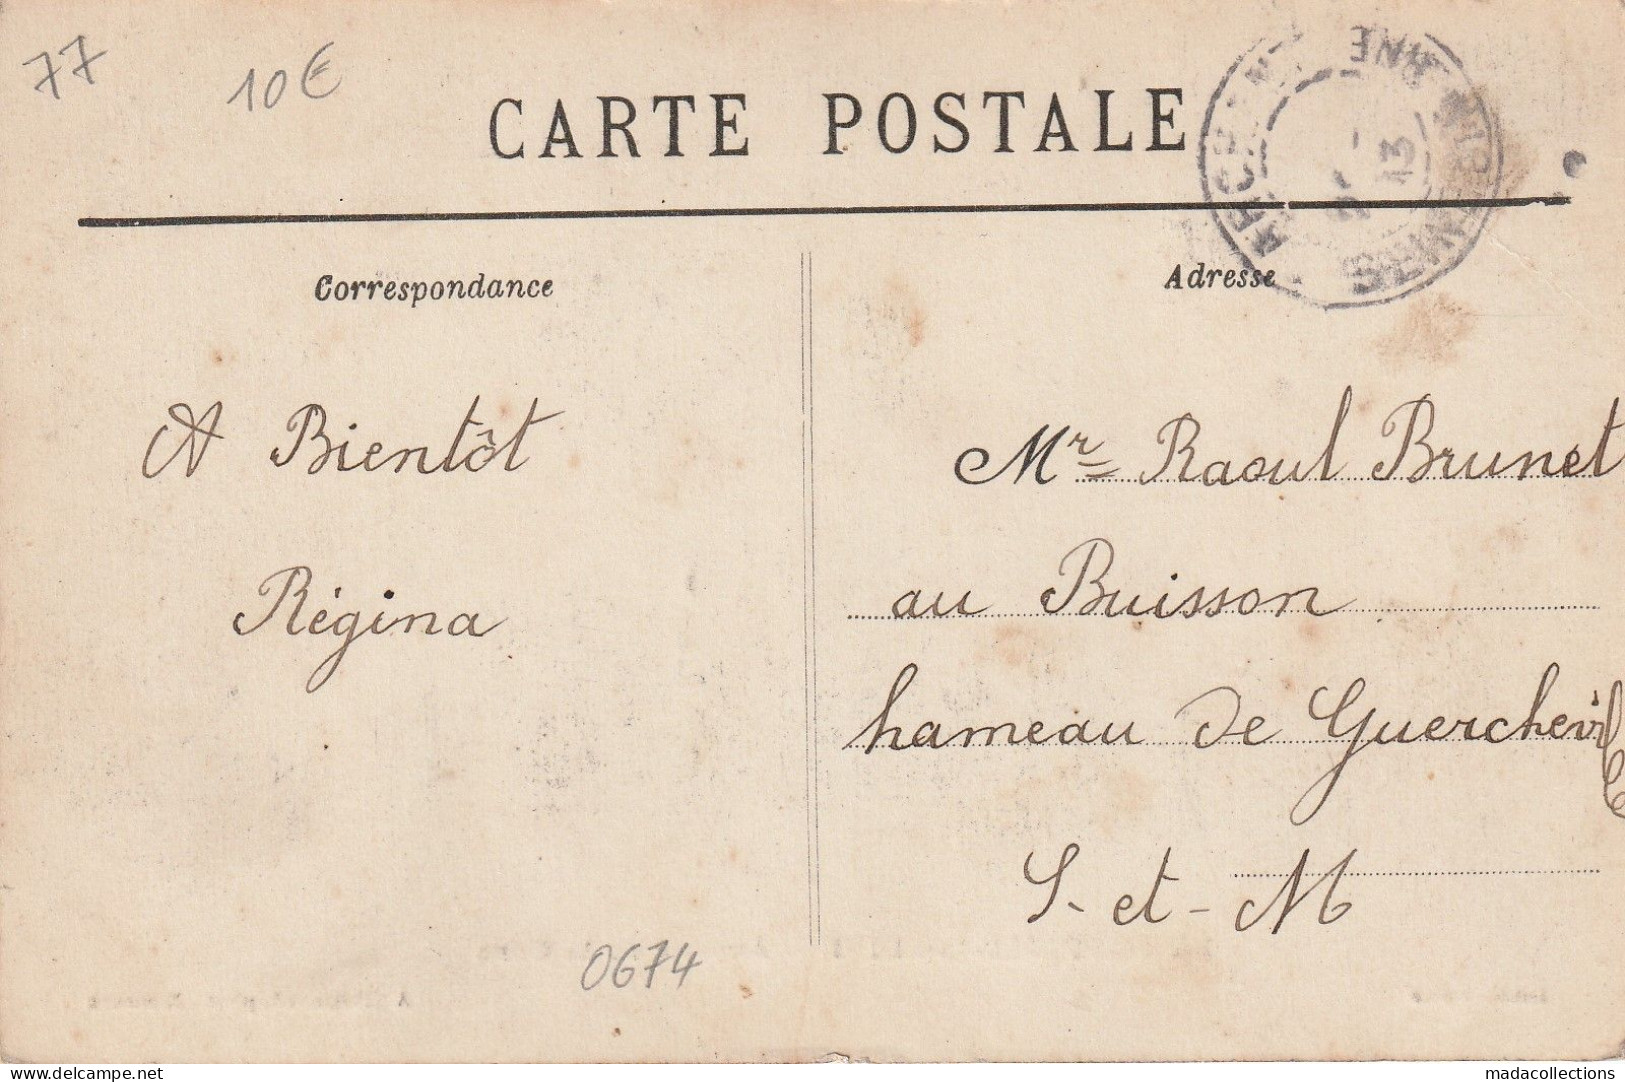 77
10€
CARTE POSTALE
13
Correspondance
Adresse
A Bientôt
Régina
Mr Raoul Brunet
au Buisson
hameau de Guercheville
S-et-M
0674
delcampe.net
madacollections